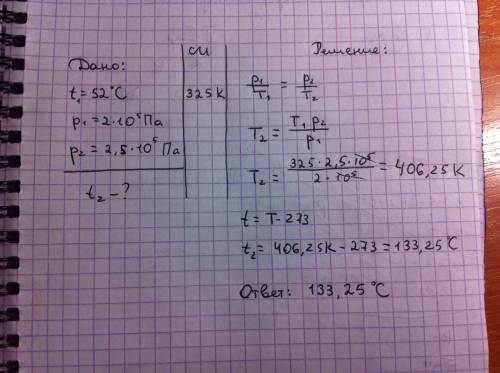 Дано:
t₁ = 52°C
p₁ = 2·10⁵ Па
p₂ = 2,5·10⁵ Па
t₂ - ?
СИ
325К
Решение:
p₁/T₁ = p₂/T₂
T₂ = T₁ p₂/p₁
T₂ = 325·2,5·10⁵/2·10⁵ = 406,25К
t = T - 273
t₂ = 406,25К - 273 = 133,25°C
Ответ: 133,25°C